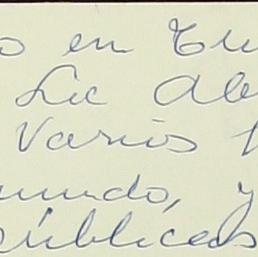 o en Tru
Lic Abe
Varios
mundo, y
públicas